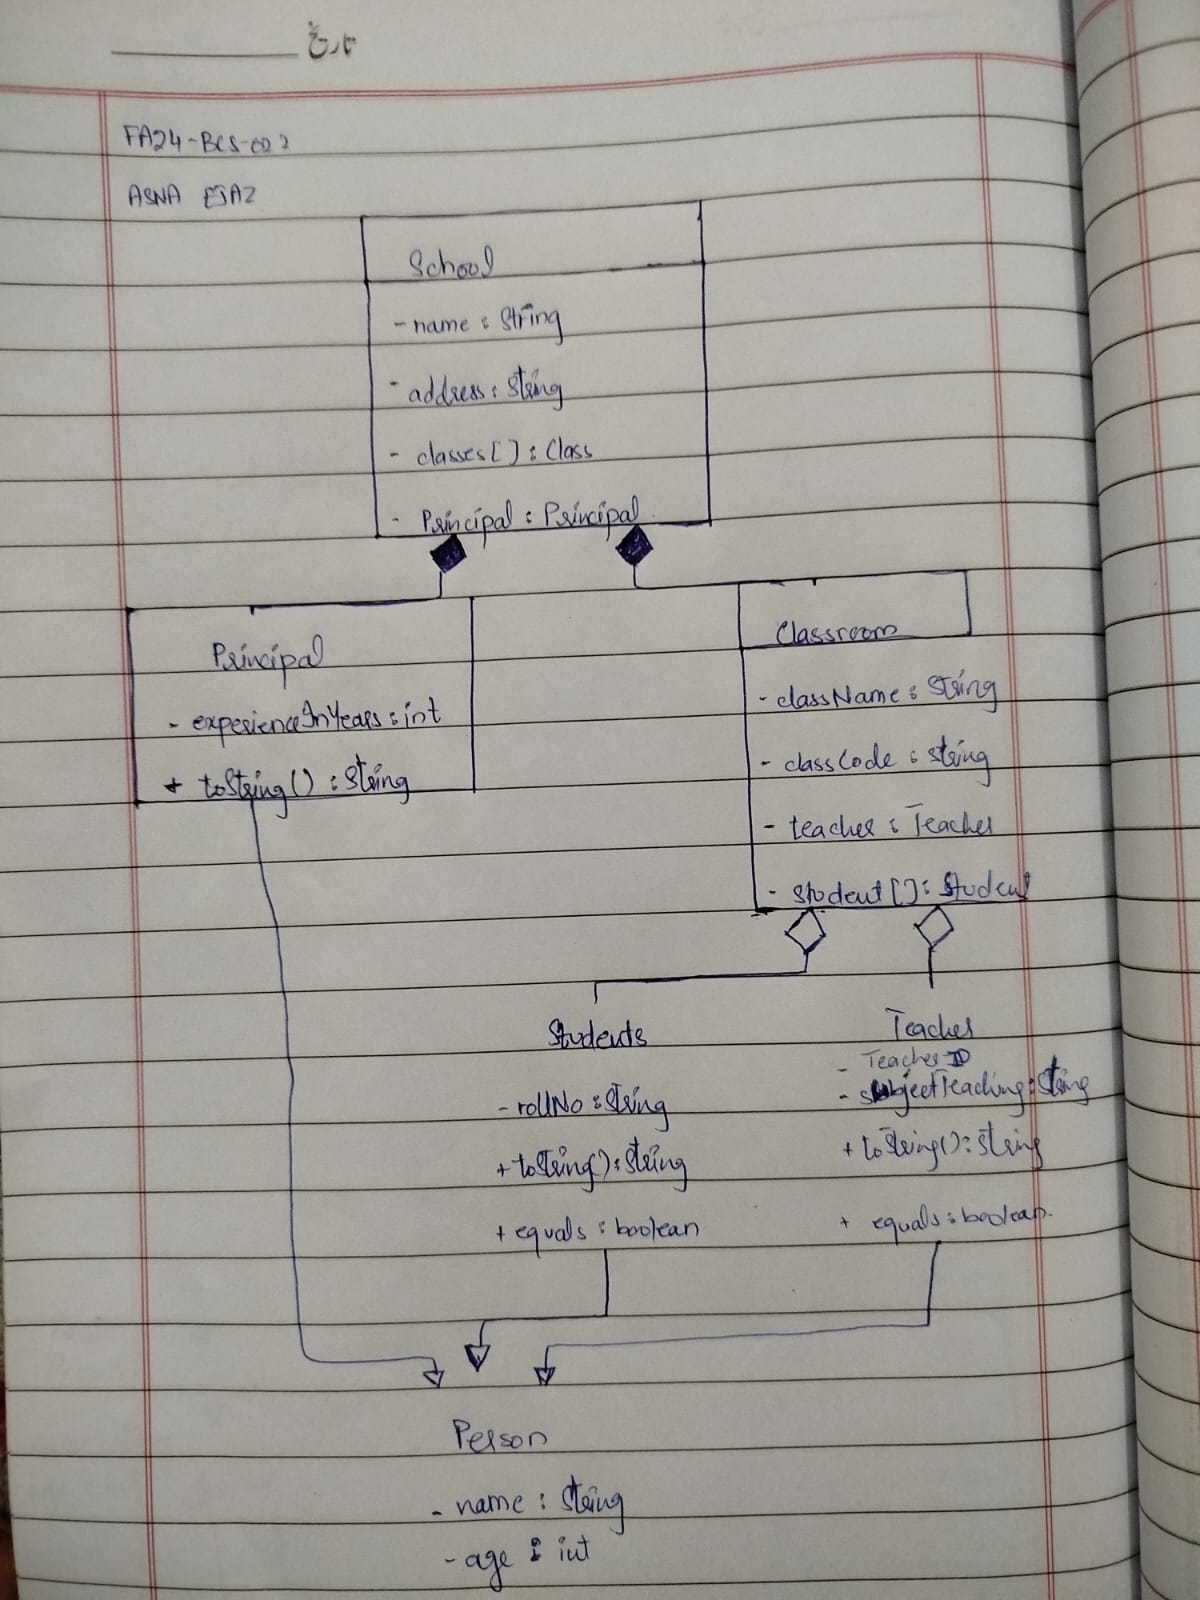 تاریخ
FA24-BCS-022
ASNA EJAZ
School
- name : String
- address : String
- classes[] : Class
- Principal : Principal
Principal
- experienceInYears : int
+ toString() : String
Classroom
- className : String
- classCode : string
- teacher : Teacher
- student[] : Student
Students
- rollNo : String
+ toString() : String
+ equals : boolean
Teacher
- TeacherID
- subjectTeaching : String
+ toString() : String
+ equals : boolean.
Person
- name : String
- age : int